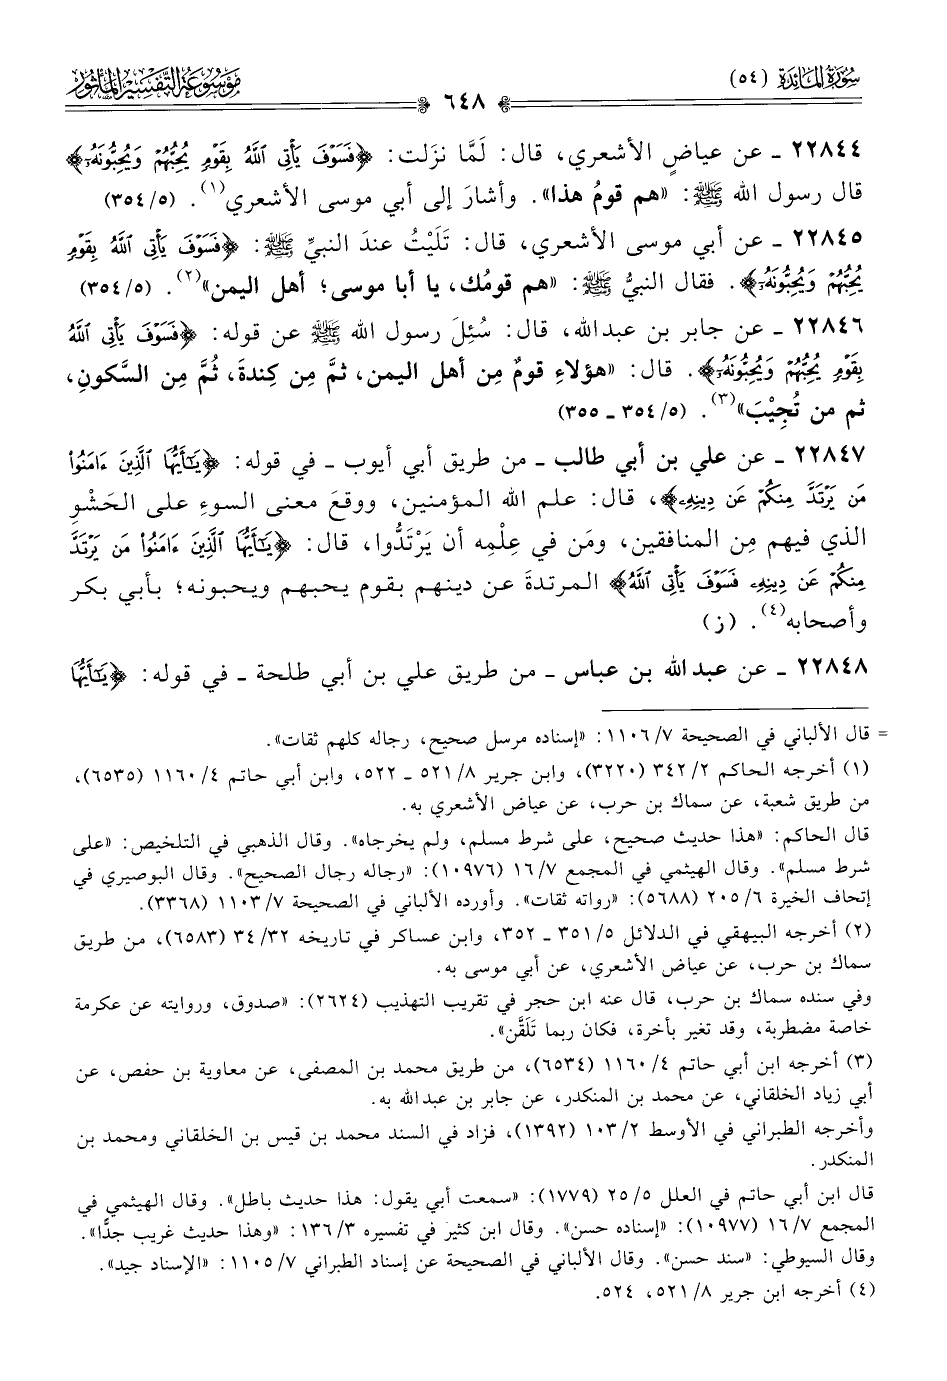 سورة المائدة (٥٤)
موسوعة التفسير المأثور
٦٤٨
٢٢٨٤٤ ـ عن عياضٍ الأشعري، قال: لَمَّا نزَلت: ﴿فَسَوْفَ يَأْتِي اللَّهُ بِقَوْمٍ يُحِبُّهُمْ وَيُحِبُّونَهُ﴾
قال رسول الله ﷺ: «هم قومُ هذا». وأشارَ إلى أبي موسى الأشعري(١). (٥/ ٣٥٤)
٢٢٨٤٥ ـ عن أبي موسى الأشعري، قال: تَلَيْتُ عندَ النبيِّ ﷺ: ﴿فَسَوْفَ يَأْتِي اللَّهُ بِقَوْمٍ
يُحِبُّهُمْ وَيُحِبُّونَهُ﴾. فقال النبيُّ ﷺ: «هم قومُك، يا أبا موسى؛ أهل اليمن»(٢). (٥/ ٣٥٤)
٢٢٨٤٦ ـ عن جابر بن عبدالله، قال: سُئِلَ رسول الله ﷺ عن قوله: ﴿فَسَوْفَ يَأْتِي اللَّهُ
بِقَوْمٍ يُحِبُّهُمْ وَيُحِبُّونَهُ﴾. قال: «هؤلاءِ قومٌ مِن أهل اليمن، ثمَّ مِن كِندةَ، ثُمَّ مِن السَّكونِ،
ثم من تُجِيْبَ»(٣). (٥/ ٣٥٤ ـ ٣٥٥)
٢٢٨٤٧ ـ عن علي بن أبي طالب ـ من طريق أبي أيوب ـ في قوله: ﴿يَا أَيُّهَا الَّذِينَ ءَامَنُوا
مَن يَرْتَدَّ مِنكُمْ عَن دِينِهِ﴾، قال: علم الله المؤمنين، ووقعَ معنى السوءِ على الحَشْوِ
الذي فيهم مِن المنافقين، ومَن في عِلْمِه أن يَرْتَدُّوا، قال: ﴿يَا أَيُّهَا الَّذِينَ ءَامَنُوا مَن يَرْتَدَّ
مِنكُمْ عَن دِينِهِ فَسَوْفَ يَأْتِي اللَّهُ﴾ المرتدةَ عن دينهم بقوم يحبهم ويحبونه؛ بأبي بكر
وأصحابه(٤). (ز)
٢٢٨٤٨ ـ عن عبدالله بن عباس ـ من طريق علي بن أبي طلحة ـ في قوله: ﴿يَا أَيُّهَا
= قال الألباني في الصحيحة ٧/ ١١٠٦: «إسناده مرسل صحيح، رجاله كلهم ثقات».
(١) أخرجه الحاكم ٢/ ٣٤٢ (٣٢٢٠)، وابن جرير ٨/ ٥٢١ ـ ٥٢٢، وابن أبي حاتم ٤/ ١١٦٠ (٦٥٣٥)،
من طريق شعبة، عن سماك بن حرب، عن عياض الأشعري به.
قال الحاكم: «هذا حديث صحيح، على شرط مسلم، ولم يخرجاه». وقال الذهبي في التلخيص: «على
شرط مسلم». وقال الهيثمي في المجمع ٧/ ١٦ (١٠٩٧٦): «رجاله رجال الصحيح». وقال البوصيري في
إتحاف الخيرة ٦/ ٢٠٥ (٥٦٨٨): «رواته ثقات». وأورده الألباني في الصحيحة ٧/ ١١٠٣ (٣٣٦٨).
(٢) أخرجه البيهقي في الدلائل ٥/ ٣٥١ ـ ٣٥٢، وابن عساكر في تاريخه ٣٢/ ٣٤ (٦٥٨٣)، من طريق
سماك بن حرب، عن عياض الأشعري، عن أبي موسى به.
وفي سنده سماك بن حرب، قال عنه ابن حجر في تقريب التهذيب (٢٦٢٤): «صدوق، وروايته عن عكرمة
خاصة مضطربة، وقد تغير بأخرة، فكان ربما تَلَقَّن».
(٣) أخرجه ابن أبي حاتم ٤/ ١١٦٠ (٦٥٣٤)، من طريق محمد بن المصفى، عن معاوية بن حفص، عن
أبي زياد الخلقاني، عن محمد بن المنكدر، عن جابر بن عبدالله به.
وأخرجه الطبراني في الأوسط ٢/ ١٠٣ (١٣٩٢)، فزاد في السند محمد بن قيس بن الخلقاني ومحمد بن
المنكدر.
قال ابن أبي حاتم في العلل ٥/ ٢٥ (١٧٧٩): «سمعت أبي يقول: هذا حديث باطل». وقال الهيثمي في
المجمع ٧/ ١٦ (١٠٩٧٧): «إسناده حسن». وقال ابن كثير في تفسيره ٣/ ١٣٦: «وهذا حديث غريب جدًّا».
وقال السيوطي: «سند حسن». وقال الألباني في الصحيحة عن إسناد الطبراني ٧/ ١١٠٥: «الإسناد جيد».
(٤) أخرجه ابن جرير ٨/ ٥٢١، ٥٢٤.